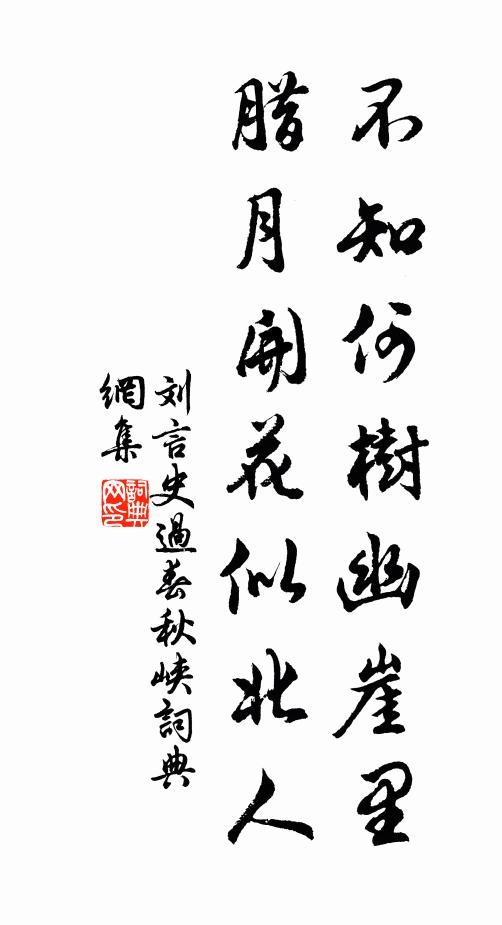 不知何樹幽崖里
腊月開花似北人
刘言史過春秋峡詞典
網集
詞典
网印